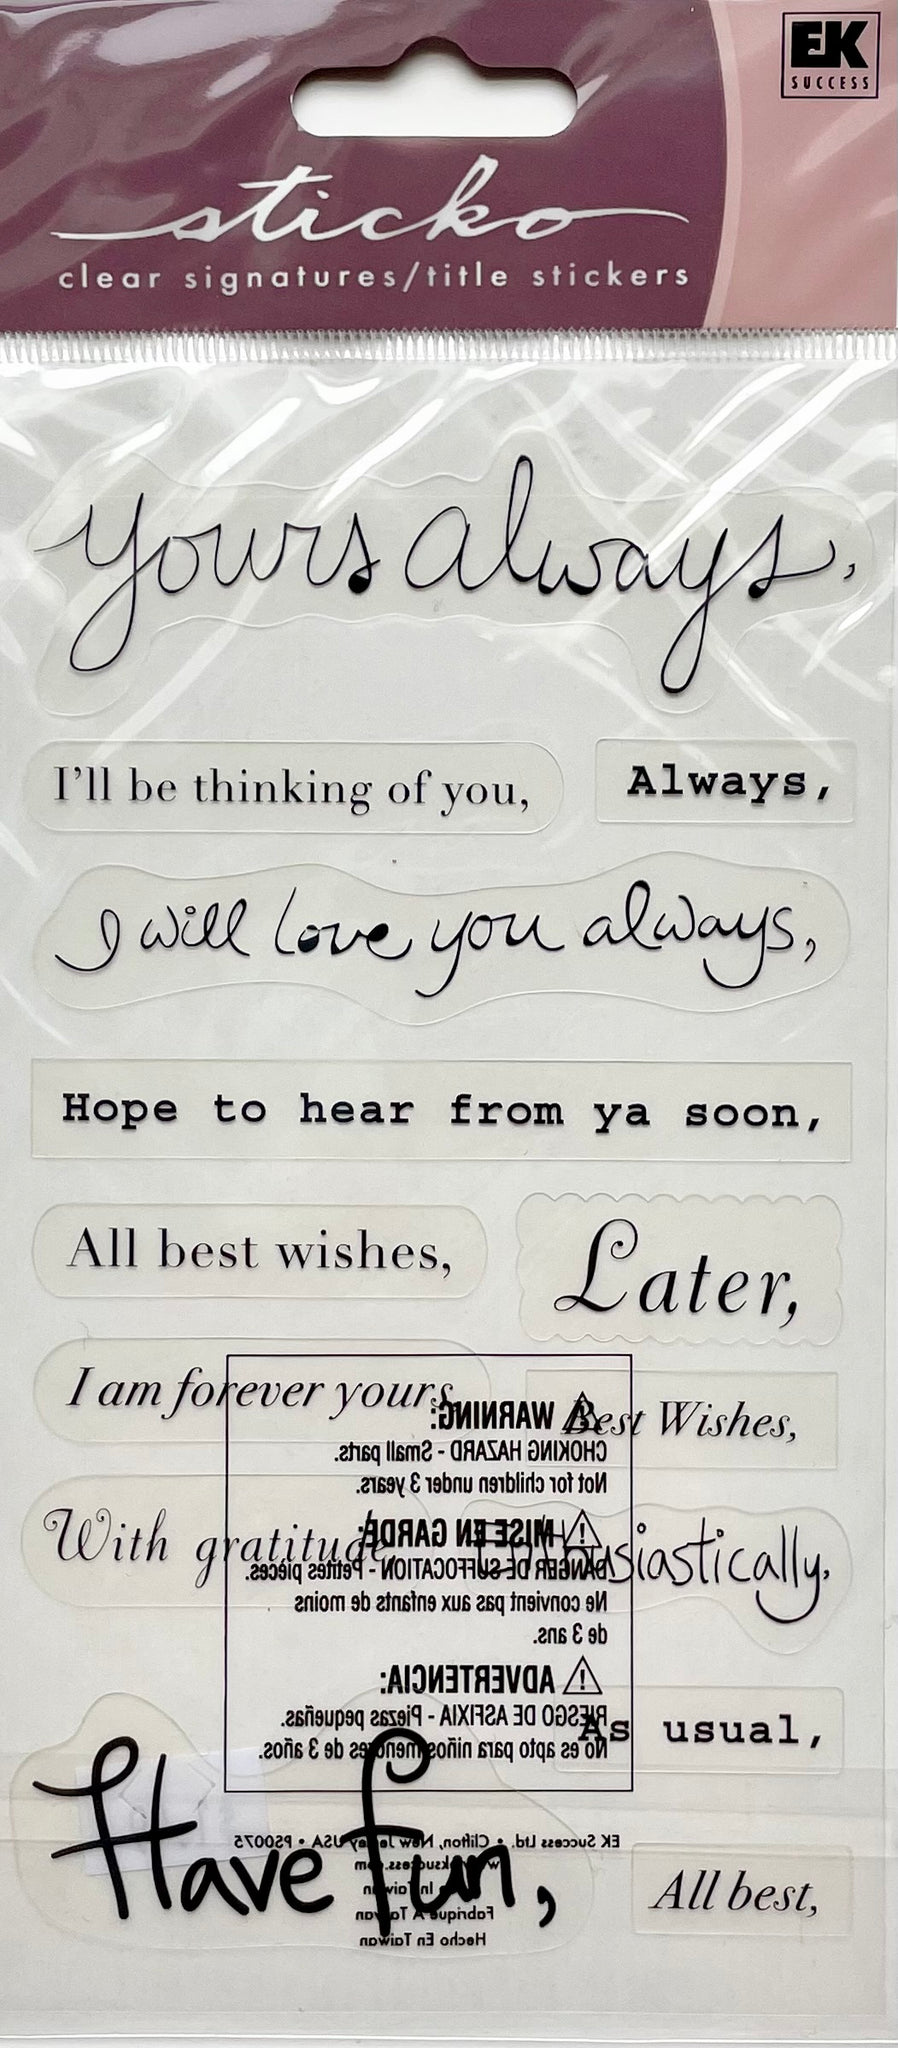 EK
SUCCESS
sticko
clear signatures/title stickers
yours always,
I'll be thinking of you,
Always,
I will love you always,
Hope to hear from ya soon,
All best wishes,
Later,
I am forever yours
Best Wishes,
With gratitude,
Enthusiastically,
As usual,
Have fun,
All best,
WARNING:
CHOKING HAZARD - Small parts.
Not for children under 3 years.
MISE EN GARDE:
DANGER DE SUFFOCATION - Petites pièces.
Ne convient pas aux enfants de moins
de 3 ans.
ADVERTENCIA:
RIESGO DE ASFIXIA - Piezas pequeñas.
No es apto para niños menores de 3 años.
EK Success Ltd. • Clifton, New Jersey USA • PS0075
www.eksuccess.com
In Taiwan
Fabriqué À Taiwan
Hecho En Taiwan